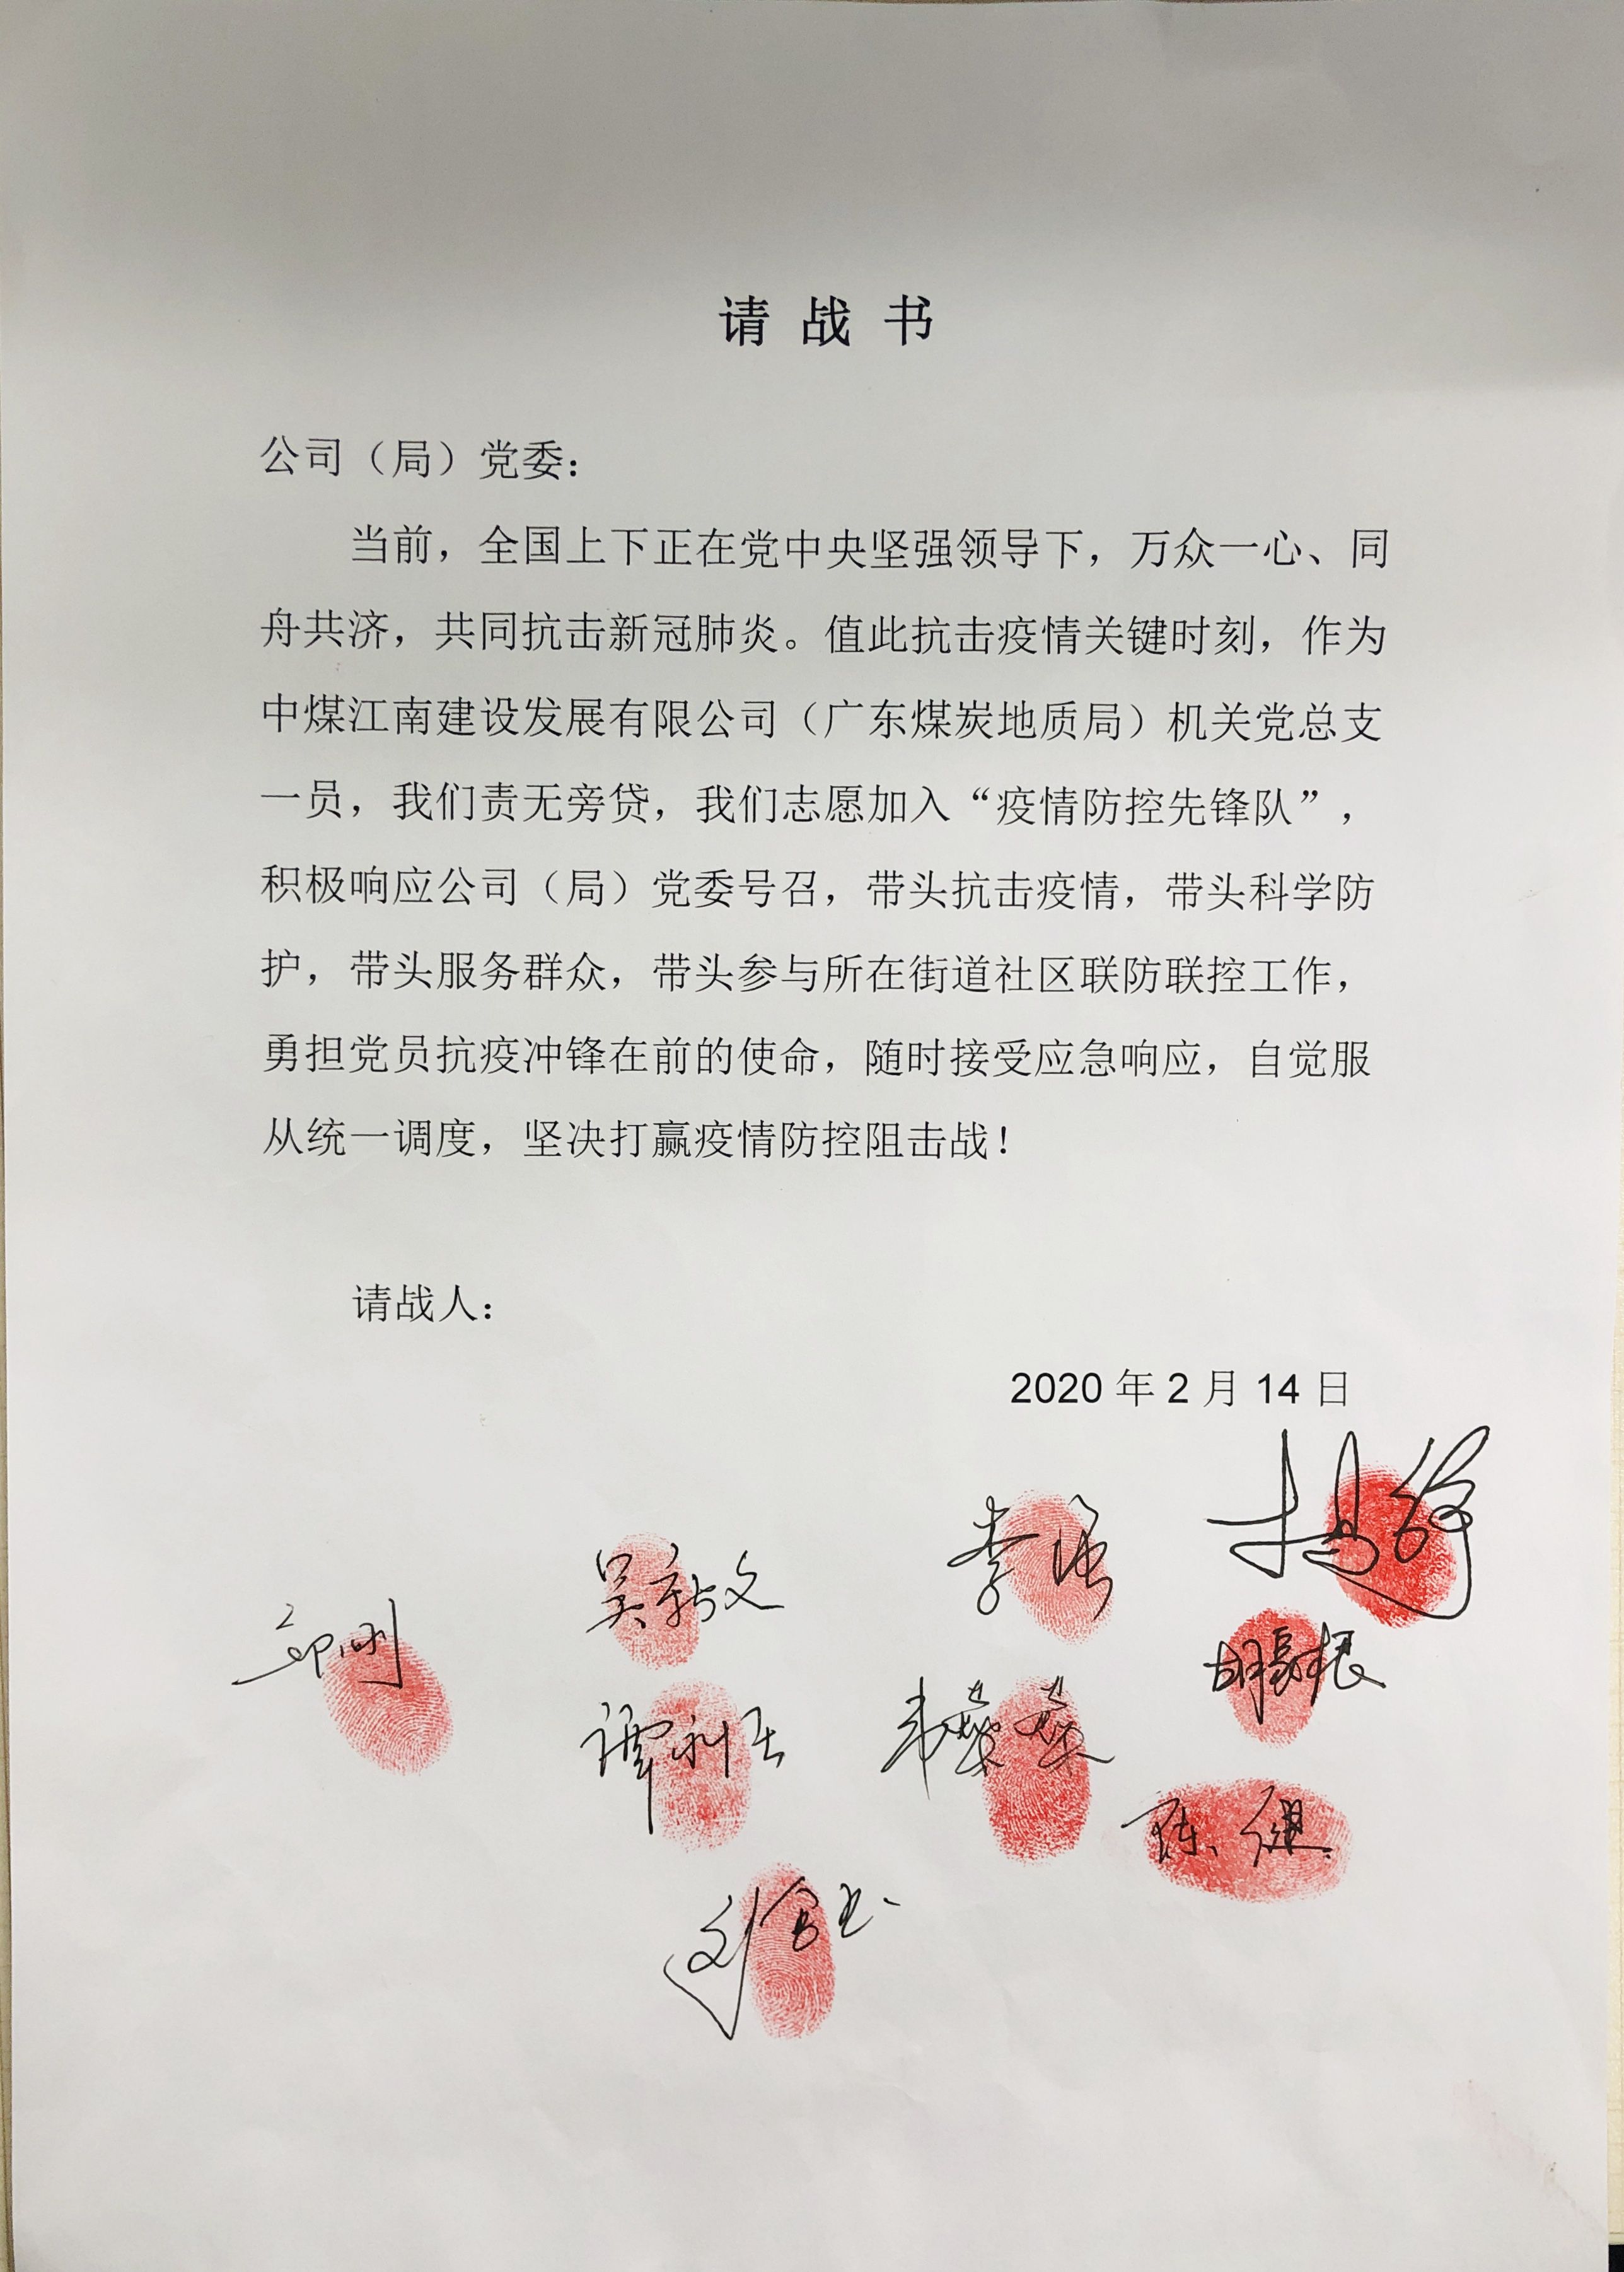 请战书
公司（局）党委：
当前，全国上下正在党中央坚强领导下，万众一心、同
舟共济，共同抗击新冠肺炎。值此抗击疫情关键时刻，作为
中煤江南建设发展有限公司（广东煤炭地质局）机关党总支
一员，我们责无旁贷，我们志愿加入“疫情防控先锋队”，
积极响应公司（局）党委号召，带头抗击疫情，带头科学防
护，带头服务群众，带头参与所在街道社区联防联控工作，
勇担党员抗疫冲锋在前的使命，随时接受应急响应，自觉服
从统一调度，坚决打赢疫情防控阻击战！
请战人：
2020年2月14日
李强
吴新文
韦葵葵
陈健